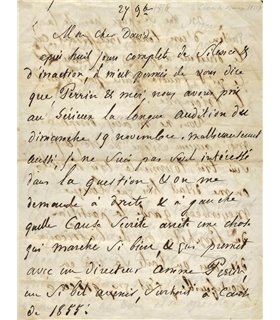 27 9b
Mon cher David
huit jours complet de Silence &
d'inaction, a m'est permis de vous dire
que Perrin & moi nous avons pris
au Sérieux la longue audition du
dimanche 19 novembre. malheureusement
aussi je ne suis pas seul intéressé
dans la question & on me
demande à droite & à gauche
quelle Cause Secrète arrête une chose
qui marche si bien & qui promet
avec un directeur comme Perrin
un si bel avenir, surtout à cause
de 1855.